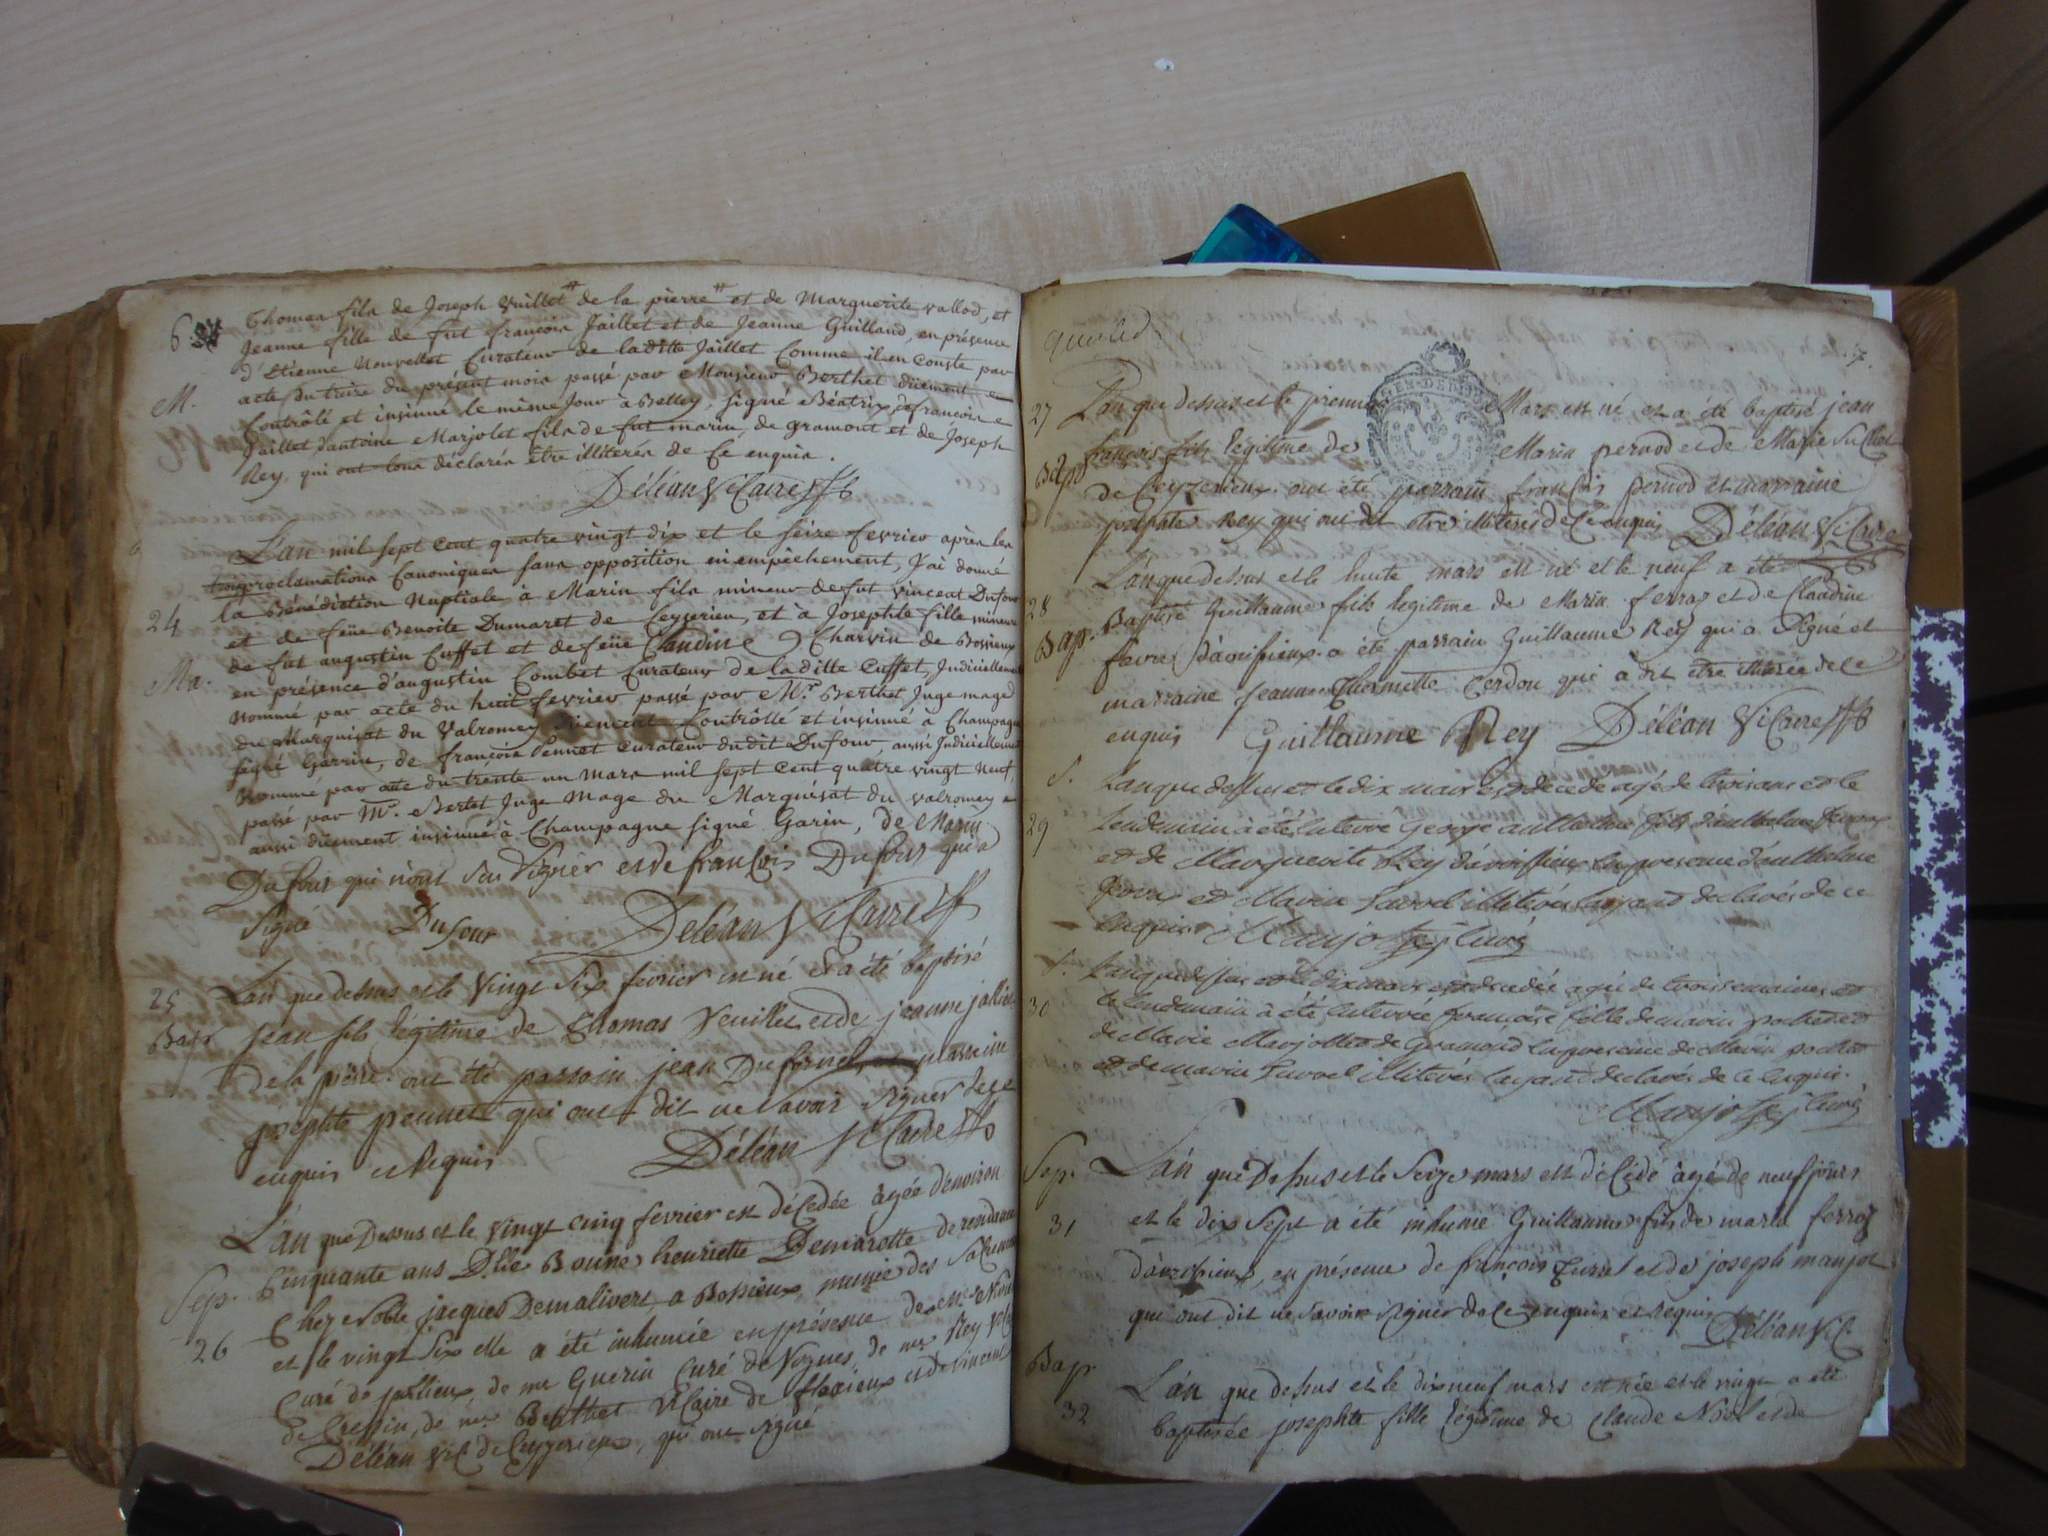 6
Thomas fils de Joseph Vuillet # de la pierre # et de Marguerite vallod, et
Jeanne fille de fut françois Jaillet et de Jeanne Guilland, en présence
d'Etienne Nouvellet Curateur de laditte Jaillet Comme il en Conste par
M.
acte du treize du présent mois passé par Monsieur Berthet düement
Contrôlé et insinué le même Jour à Belley, signé Béatrix, de françois
Jaillet d'antoine Marjolet fils de fut marin, de gramont et de Joseph
Rey, qui ont tous déclarés être illiterés de Ce enquis.
Déléan Vicaire
L'an mil sept cent quatre vingt dix et le seize fevrier après les
trois proclamations Canoniques sans opposition ni empêchement, J'ai donné
la Bénédiction Nuptiale à Marin fils mineur de fut vincent Dufour
24
et de feüe Benoite Dumaret de Ceyserieu, et à Josephte fille mineure
de fut augustin Cuffet et de feüe Claudine Charvin de Bossieux
Ma.
en présence d'augustin Combet Curateur de laditte Cuffet, Judiciellement
Nommé par acte du huit fevrier passé par Mr. Berthet Juge mage
du Marquisat du Valromey düement Contrôllé et insinué à Champagne
signé Garrin, de françois Pennet curateur dudit Dufour, aussi Judiciellement
Nommé par acte du trente un mars mil sept cent quatre vingt neuf,
passé par Mr. Bertet Juge Mage du Marquisat du valromey
aussi düement insinué à Champagne signé Garin, de Marin
Dufour qui n'ont sçu signer et de françois Dufour qui a
signé Dufour Déléan Vicaire
25
L'an que dessus et le vingt six fevrier est né et a été baptisé
Bap
jean fils légitime de Thomas Veuillet et de jeanne jalliet
de la pierre. ont été parrain jean Dufornel et marraine
josephte pennet qui ont dit ne savoir signer de ce
enquis et Requis Déléan Vicaire
L'an que Dessus et le vingt cinq fevrier est décédée agée d'environ
Sep.
Cinquante ans Dlle Bonne henriette Demarette de residance
Chez Noble jacques Demalivert a Bossieux, munie des Sacremens
26
et le vingt Six elle a été inhumée en présence de
Curé de pollieux, de mr Guerin Curé de Vognes, de mr Rey
de Cressin, de mr Berthet Vicaire de flaxieux et de vincent
Déléan Vic de Ceyzerieux, qui ont signé
27
L'an que dessus et le premier Mars est né, et a été baptisé jean
Bap
françois fils légitime de Marin pernod et de Marie
de Ceyzerieux. ont été parrain françois pernod et marraine
josephte Rey qui ont dit etre illiterés de Ce enquis Déléan Vicaire
L'an que dessus et le huite mars est né et le neuf a été
28
Bap.
Baptisé Guillaume fils legitime de Marin ferraz et de Claudine
favre d'avrissieux. a été parrain Guillaume Rey qui a signé et
marraine jeanne Thormette Cerdon qui a dit etre illiterée de ce
enquis Guillaume Rey Déléan Vicaire
S.
L'an que dessus et le dix mars est décédé agé de trois ans et le
29
lendemain a été enterré George anthelme fils d'anthelme
et de Marguerite Rey d'avrissieux en presence d'anthelme
et Marin illiterés layant declarés de ce
enquis Maujot curé
S.
L'an que dessus et le dix mars est decedée agée de trois semaines et
30
le lendemain a été enterrée françoise fille de marin pochet et
de Marie Marjollet de Gramond en presence de Marin pochet
et de marin illiterés layant declarés de ce enquis.
Maujot curé
Sep.
L'an que Dessus et le Seize mars est décédé agé de neuf jours
31
et le dix Sept a été inhumé Guillaume fils de marin ferroz
d'avrissieux, en présence de françois et de joseph manjot
qui ont dit ne Savoir Signer de Ce enquis et requis Déléan Vic
Bap
L'an que dessus et le dixneuf mars est née et le vingt a été
32
baptisée josephte fille légitime de Claude et de